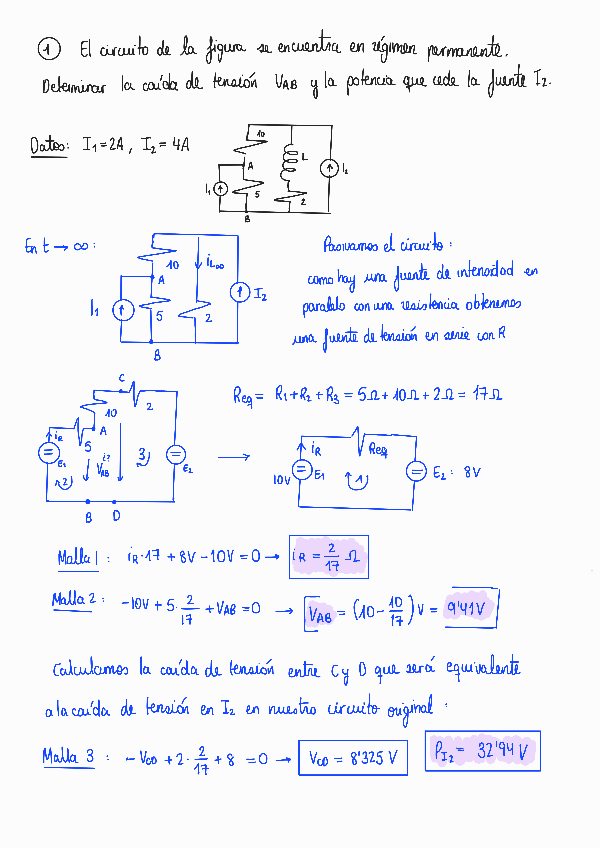 1 El circuito de la figura se encuentra en régimen permanente.
Determinar la caída de tensión VAB y la potencia que cede la fuente I2.
Datos: I1=2A, I2=4A
10
L
A
I1
5
2
I2
B
En t → ∞:
Pasivamos el circuito:
como hay una fuente de intensidad en
paralelo con una resistencia obtenemos
una fuente de tensión en serie con R
10
iL∞
A
I1
5
2
I2
B
C
10
2
iR
A
5
E1
¿?
VAB
2
3
E2
B D
→
iR
Req
10V E1
1
E2: 8V
Req = R1+R2+R3 = 5Ω+10Ω+2Ω = 17Ω
Malla 1: iR·17 + 8V - 10V = 0 → iR = 2/17 Ω
Malla 2: -10V + 5·2/17 + VAB = 0 → VAB = (10 - 10/17)V = 9'41V
Calculamos la caída de tensión entre C y D que será equivalente
a la caída de tensión en I2 en nuestro circuito original:
Malla 3: -VCD + 2·2/17 + 8 = 0 → VCD = 8'325 V
PI2 = 32'94 V